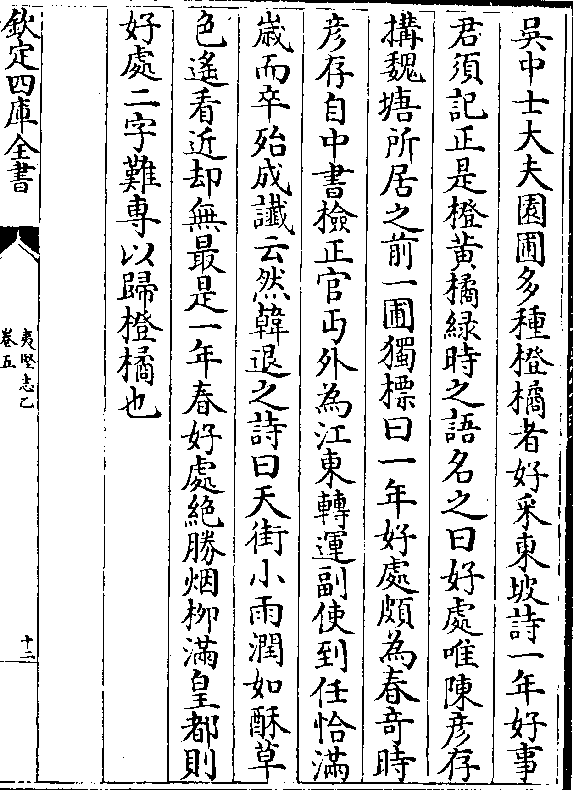 吳中士大夫園圃多種橙橘者好采東坡詩一年好事
君須記正是橙黄橘緑時之語名之曰好處唯陳彦存
搆魏塘所居之前一圃獨標曰一年好處頗為春竒時
彦存自中書檢正官丐外為江東轉運副使到任恰滿
嵗而卒殆成䜟云然韓退之詩曰天街小雨潤如酥草
色遙看近却無最是一年春好處絶勝烟柳滿皇都則
好處二字難専以歸橙橘也
欽定四庫全書
夷堅志乙
卷五
十二